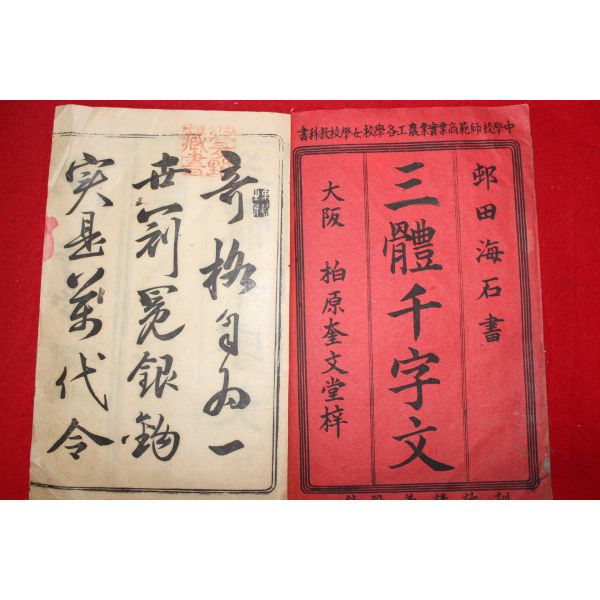 中學校師範商業實業農工各學校女學校教科書
邨田海石書
三體千字文
大阪 柏原奎文堂梓
奇格自為一
世前冕銀鈎
実是萬代令
藏書